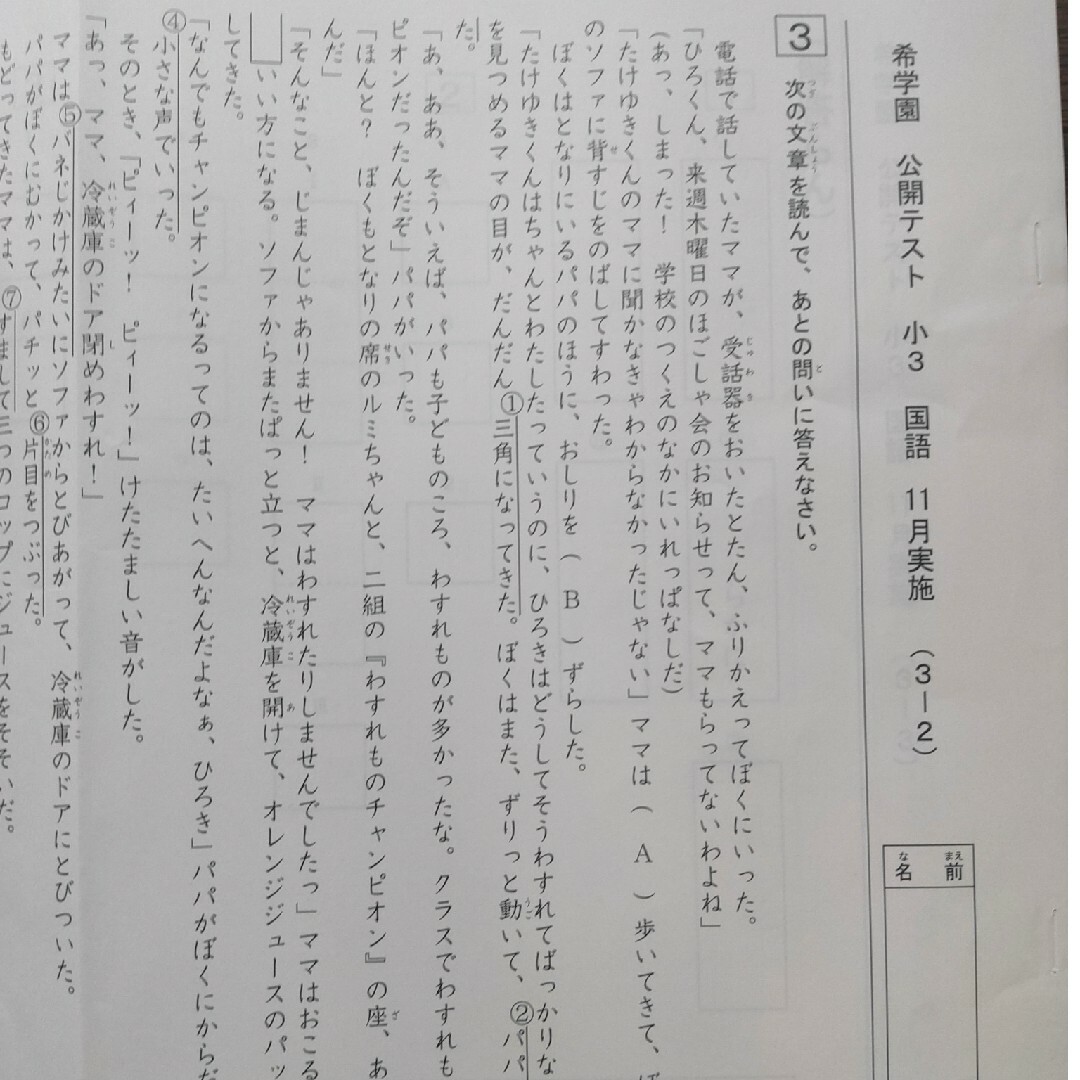 希学園 公開テスト 小3 国語 11月実施 (3－2)
名前
3 次の文章を読んで、あとの問いに答えなさい。
電話で話していたママが、受話器をおいたとたん、ふりかえってぼくにいった。
「ひろくん、来週木曜日のほごしゃ会のお知らせって、ママもらってないわよね」
(あっ、しまった! 学校のつくえのなかにいれっぱなしだ)
「たけゆきくんのママに聞かなきゃわからなかったじゃない」ママは(A)歩いてきて、ぼ
のソファに背すじをのばしてすわった。
ぼくはとなりにいるパパのほうに、おしりを(B)ずらした。
「たけゆきくんはちゃんとわたしたっていうのに、ひろきはどうしてそうわすれてばっかりな
を見つめるママの目が、だんだん①三角になってきた。ぼくはまた、ずりっと動いて、②パパ
た。
「あ、ああ、そういえば、パパも子どものころ、わすれものが多かったな。クラスでわすれも
ピオンだったんだぞ」パパがいった。
「ほんと? ぼくもとなりの席のルミちゃんと、二組の『わすれものチャンピオン』の座、あ
んだ」
「そんなこと、じまんじゃありません! ママはわすれたりしませんでしたっ」ママはおこる
いい方になる。ソファからまたぱっと立つと、冷蔵庫を開けて、オレンジジュースのパッ
してきた。
「なんでもチャンピオンになるってのは、たいへんなんだよなぁ、ひろき」パパがぼくにからだ
④小さな声でいった。
そのとき、「ピィーッ! ピィーッ!」けたたましい音がした。
「あっ、ママ、冷蔵庫のドア閉めわすれ!」
ママは⑤バネじかけみたいにソファからとびあがって、冷蔵庫のドアにとびついた。
パパがぼくにむかって、パチッと⑥片目をつぶった。
もどってきたママは、⑦すまして三つのコップにジュースをそそいだ。